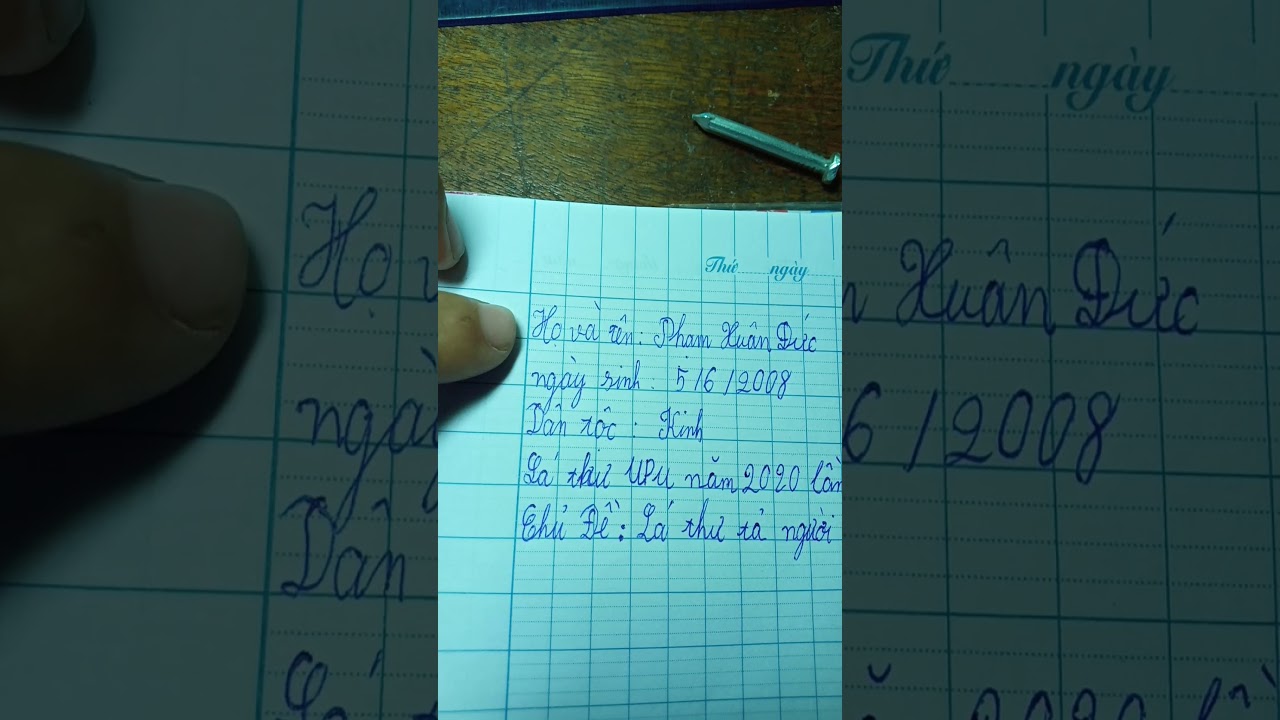 Thứ ngày
Họ và tên: Phạm Xuân Đức
ngày sinh: 5/6/2008
Dân tộc: Kinh
Lá thư UPU năm 2020 lần
Chủ Đề: Lá thư tả người